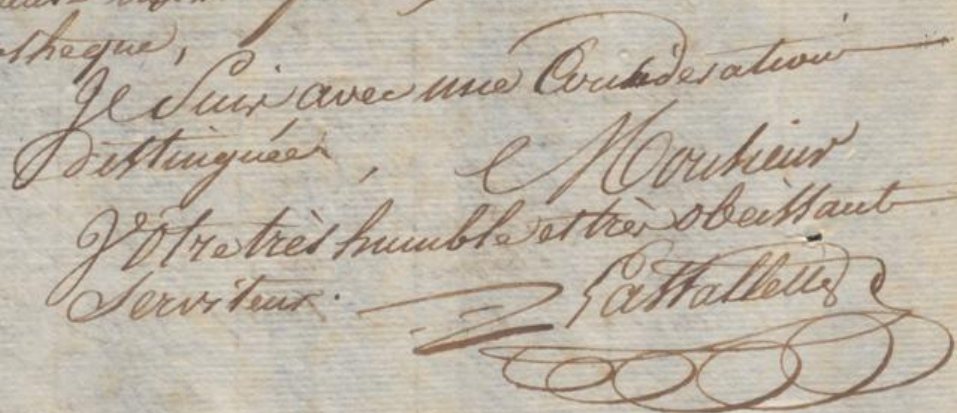 Je suis avec une Consideration
distinguée, Monsieur
Votre très humble et très obeissant
Serviteur.